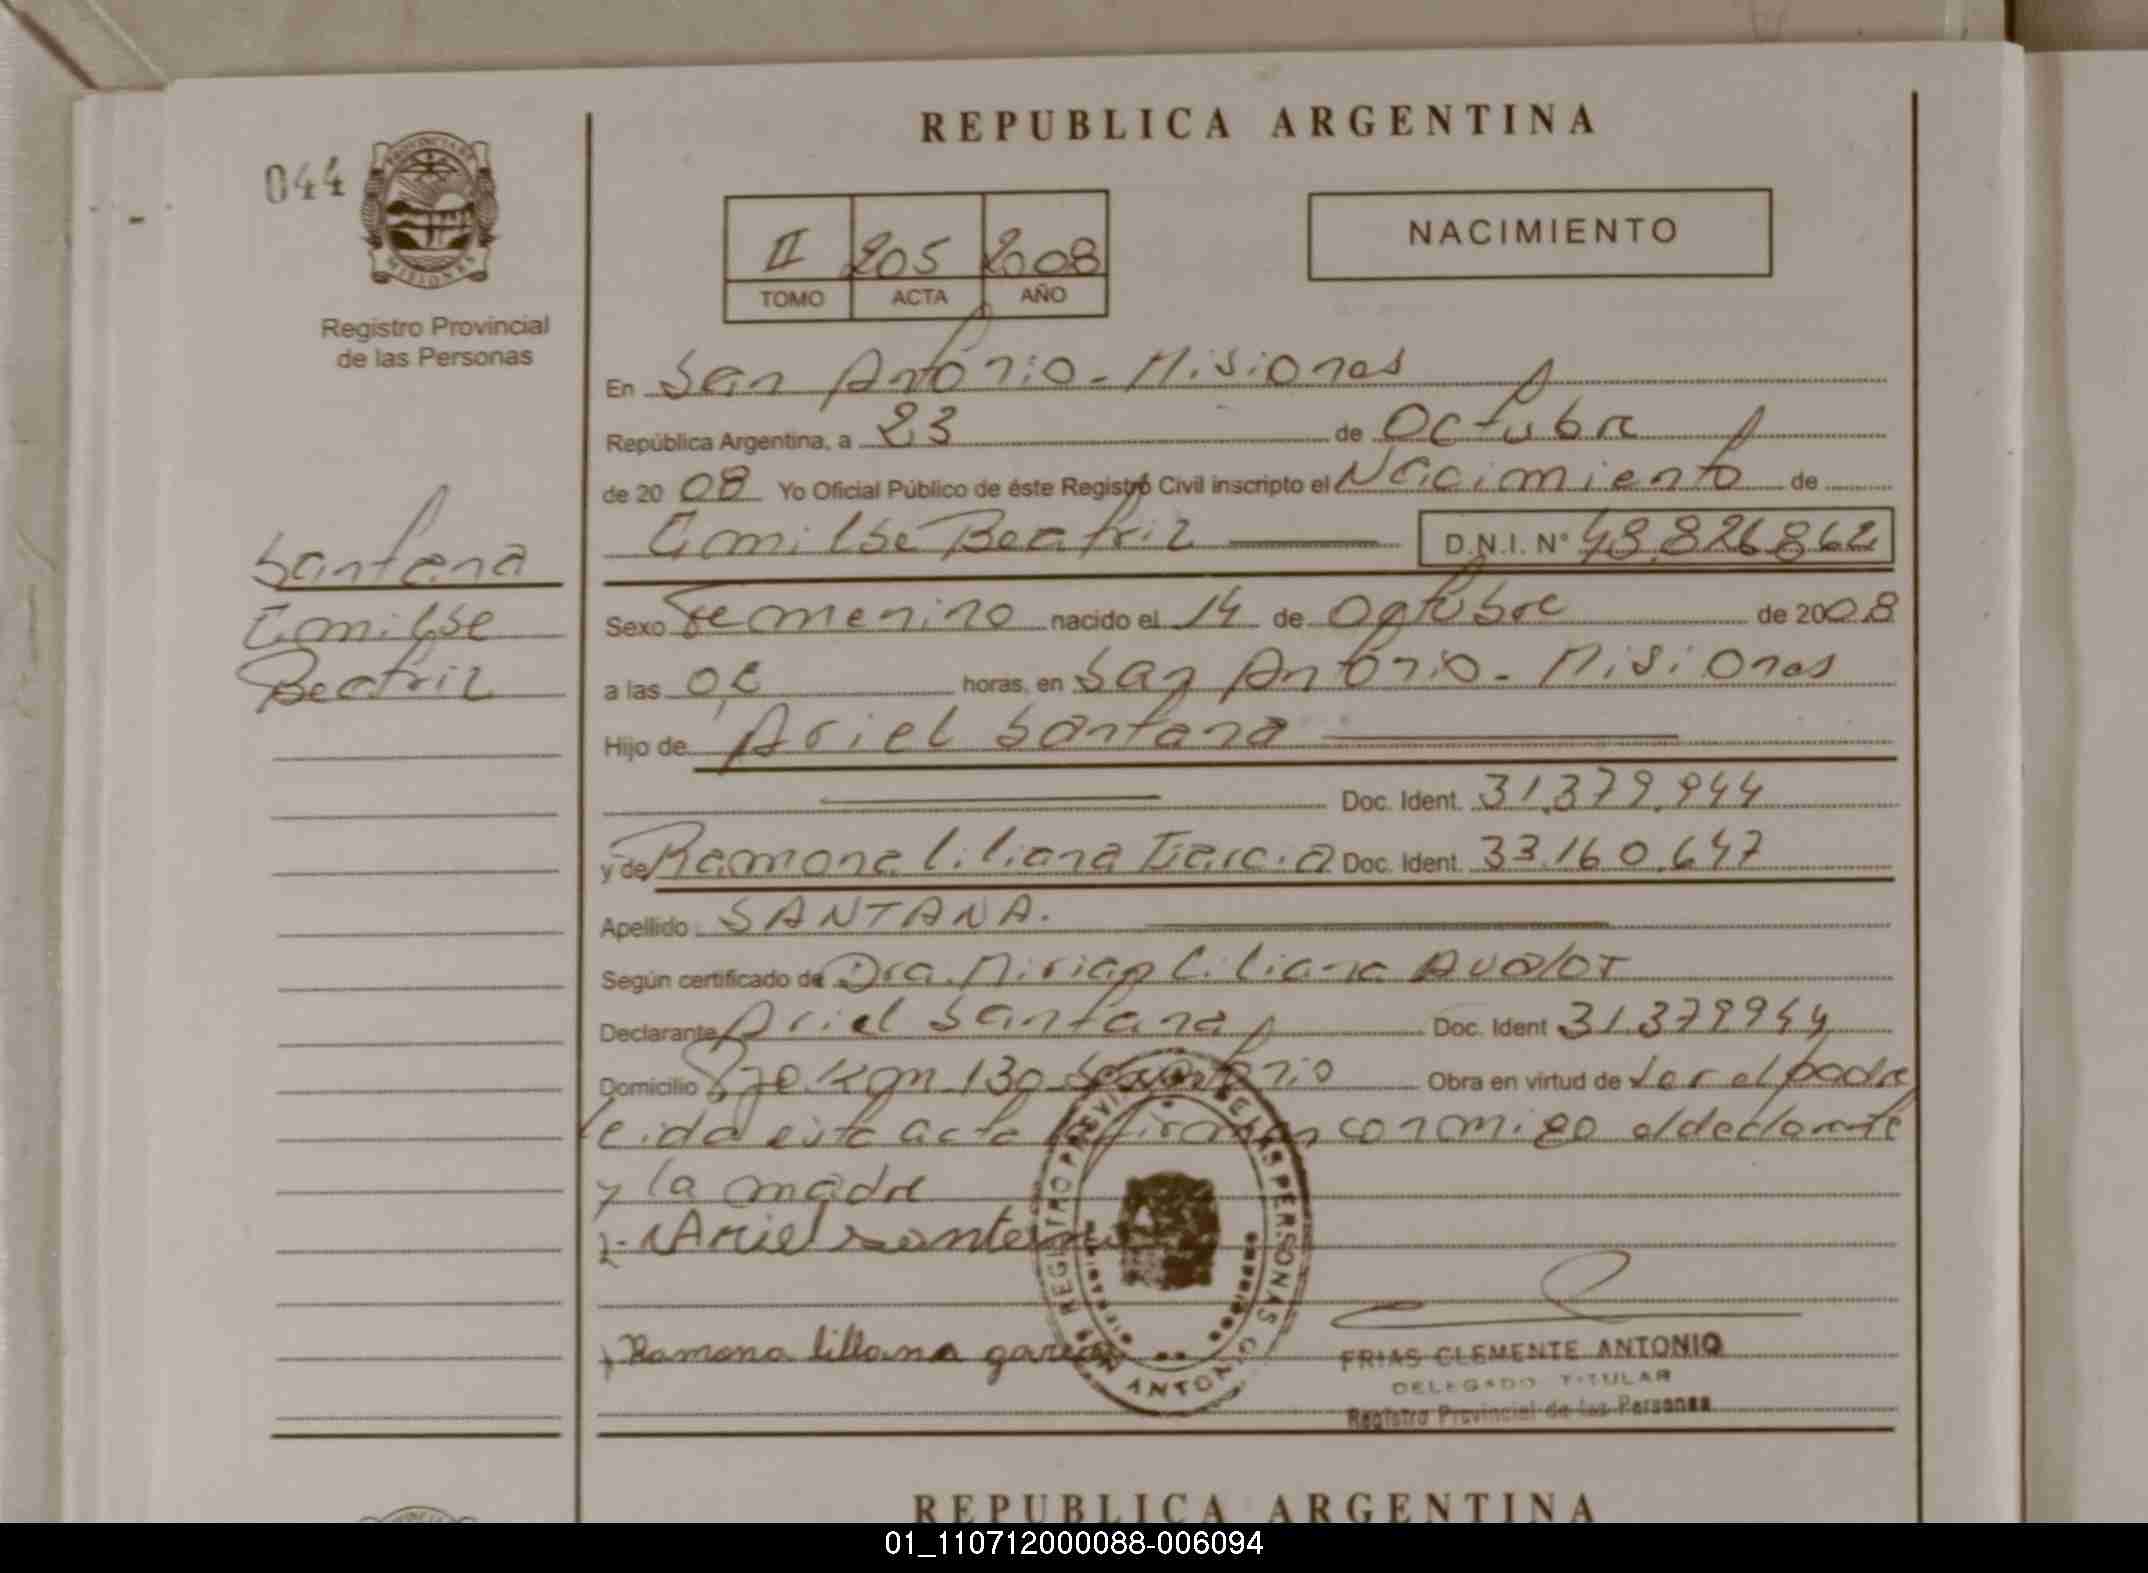 REPUBLICA ARGENTINA
044
PROVINCIA DE
MISIONES
Registro Provincial
de las Personas
II 205 2008
TOMO ACTA AÑO
NACIMIENTO
En San Antonio - Misiones
República Argentina, a 23 de Octubre
de 20 08 Yo Oficial Público de éste Registro Civil inscripto el Nacimiento de
Beatriz D.N.I. Nº 48.826862
Santana
Beatriz
Sexo Femenino nacido el 14 de Octubre de 2008
a las horas, en San Antonio - Misiones
Hijo de Ariel Santana
Doc. Ident. 31.379.944
y de Ramona Liliana Garcia Doc. Ident. 33.160.647
Apellido SANTANA.
Según certificado de Dra. Mirian Liliana
Declarante Ariel Santana Doc. Ident 31379944
Domicilio 130 Obra en virtud de ser el padre
leida esta acta la firman conmigo el declarante
y la madre
Ariel Santana
Ramona lillana garcia
REGISTRO PROVINCIAL DE LAS PERSONAS
ANTONIO
FRIAS CLEMENTE ANTONIO
DELEGADO TITULAR
Registro Provincial de las Personas
REPUBLICA ARGENTINA
01_110712000088-006094